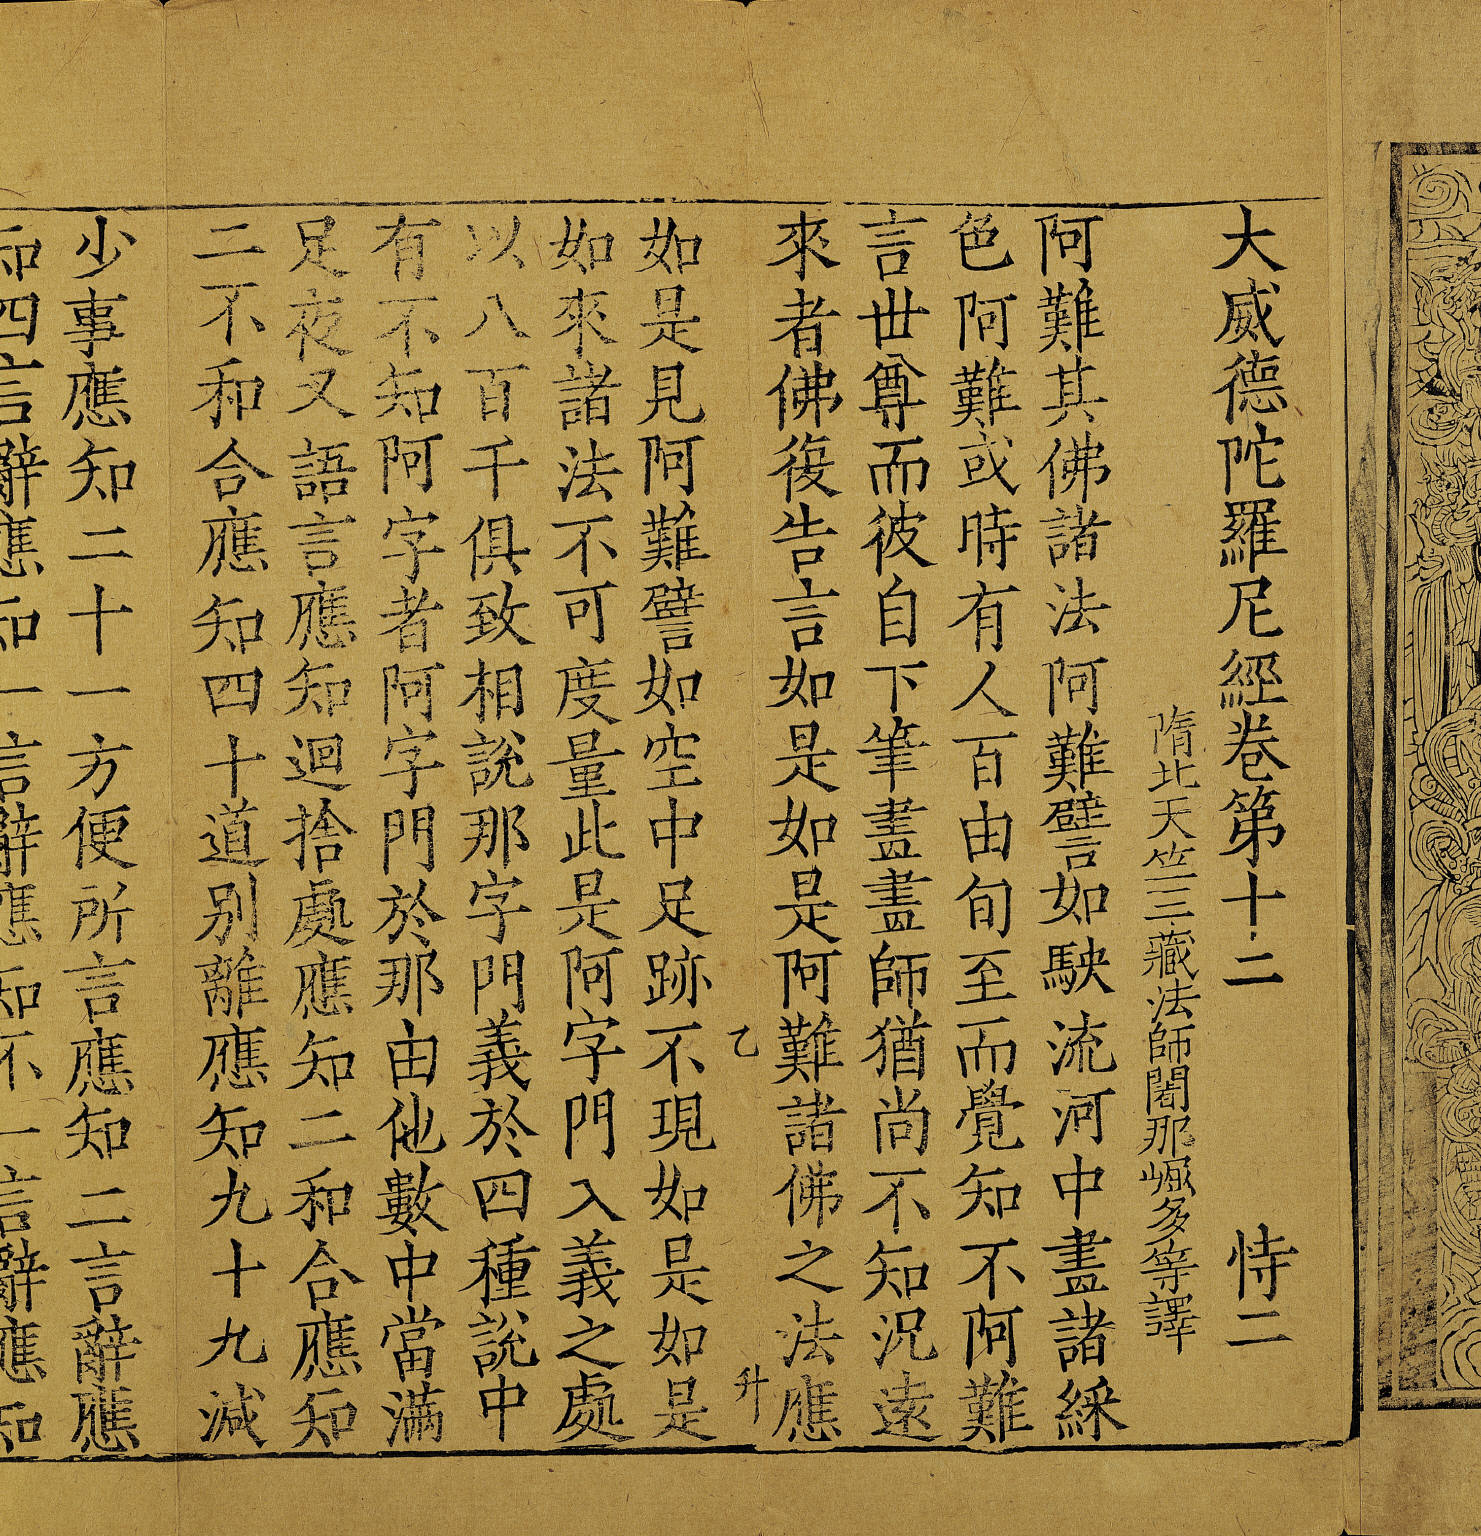 大威德陀羅尼經卷第十二 恃二
隋北天竺三藏法師闍那崛多等譯
阿難其佛諸法阿難譬如駛流河中畫諸綵
色阿難或時有人百由旬至而覺知不阿難
言世尊而彼自下筆畫畫師猶尚不知況遠
來者佛復告言如是如是阿難諸佛之法應
乙 升
如是見阿難譬如空中足跡不現如是如是
如來諸法不可度量此是阿字門入義之處
以八百千俱致相說那字門義於四種說中
有不知阿字者阿字門於那由他數中當滿
足夜叉語言應知迴捨處應知二和合應知
二不和合應知四十道別離應知九十九減
少事應知二十一方便所言應知二言辭應
知四言辭應知一言辭應知不一言辭應知